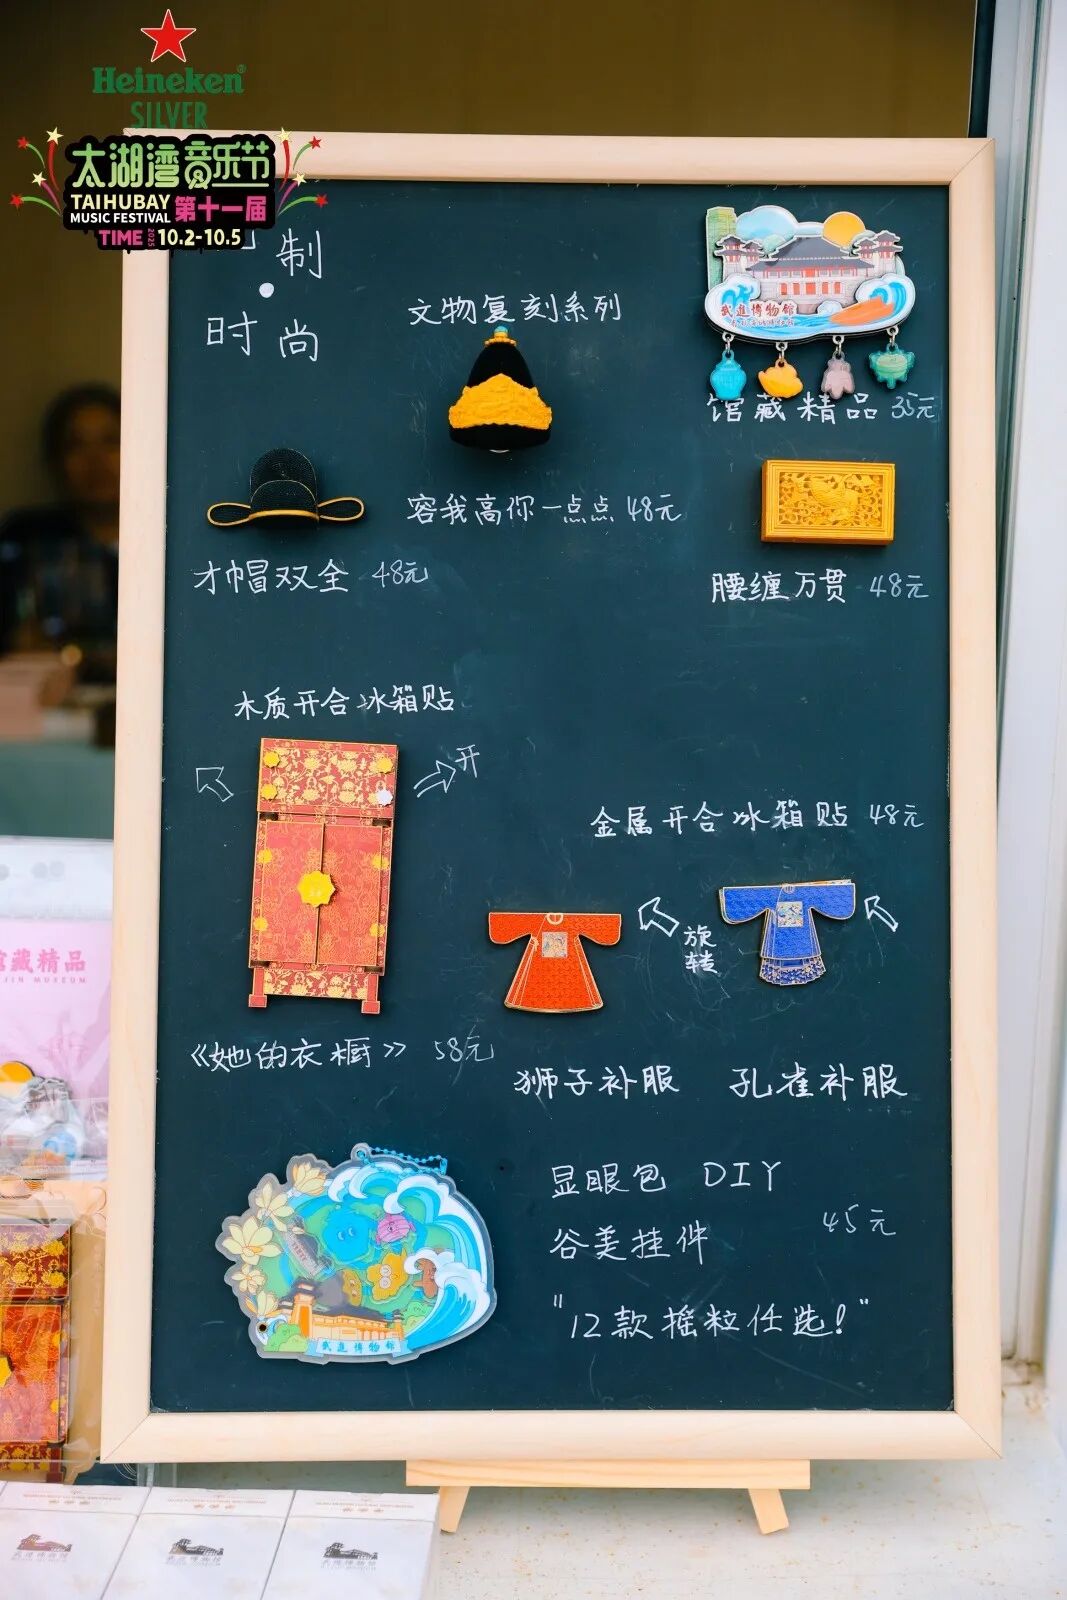 Heineken
SILVER
太湖湾音乐节
TAIHUBAY
MUSIC FESTIVAL 第十一届
TIME 2025 10.2-10.5
制
时尚
文物复刻系列
武進博物館
馆藏精品 35元
容我高你一点点 48元
才帽双全 48元
腰缠万贯 48元
木质开合冰箱贴
开
金属开合冰箱贴 48元
旋转
《她的衣橱》 58元
狮子补服 孔雀补服
显眼包 DIY
谷美挂件 45元
"12款摇粒任选!"
武進博物館
馆藏精品
JIN MUSEUM
武進博物館
武進博物館
武進博物館